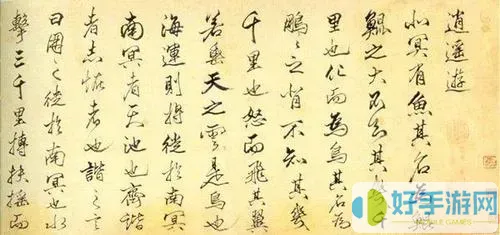 逍遥遊
北冥有魚其名為鯤
鯤之大不知其幾千
里也化而為鳥其名為
鵬々之背不知其幾
千里也怒而飛其翼
若垂天之雲是鳥也
海運則將徙於南冥
南冥者天池也齊諧
者志怪者也諧之言
曰鵬之徙於南冥也水
擊三千里摶扶搖而
好手游网